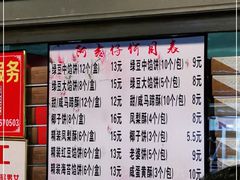 阿敏仔价目表
绿豆中馅饼(12个/盒) 13元
绿豆大馅饼(6个/盒) 15元
甜/咸马蹄酥(12个/盒) 15元
椰子饼(6个/盒) 15元
精装凤梨酥(6个/盒) 15元
精装红豆馅饼(6个/盒)
精装海苔馅饼(6个/盒)
绿豆中馅饼(10个/包) 9元
绿豆大馅饼(5个/包) 9元
甜/咸马蹄酥(10个/包) 9元
凤梨酥(6个/包)
椰子饼(3个/包) 5.5元
老婆饼(5个/包) 9元
咸蛋黄酥(3个/包)
务
670503
工